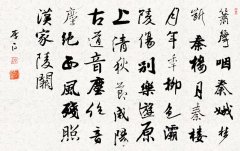 簫聲咽秦娥夢
斷秦樓月秦樓
月年年柳色灞
陵傷別樂遊原
上清秋節咸陽
古道音塵絕音
塵絕西風殘照
漢家陵闕